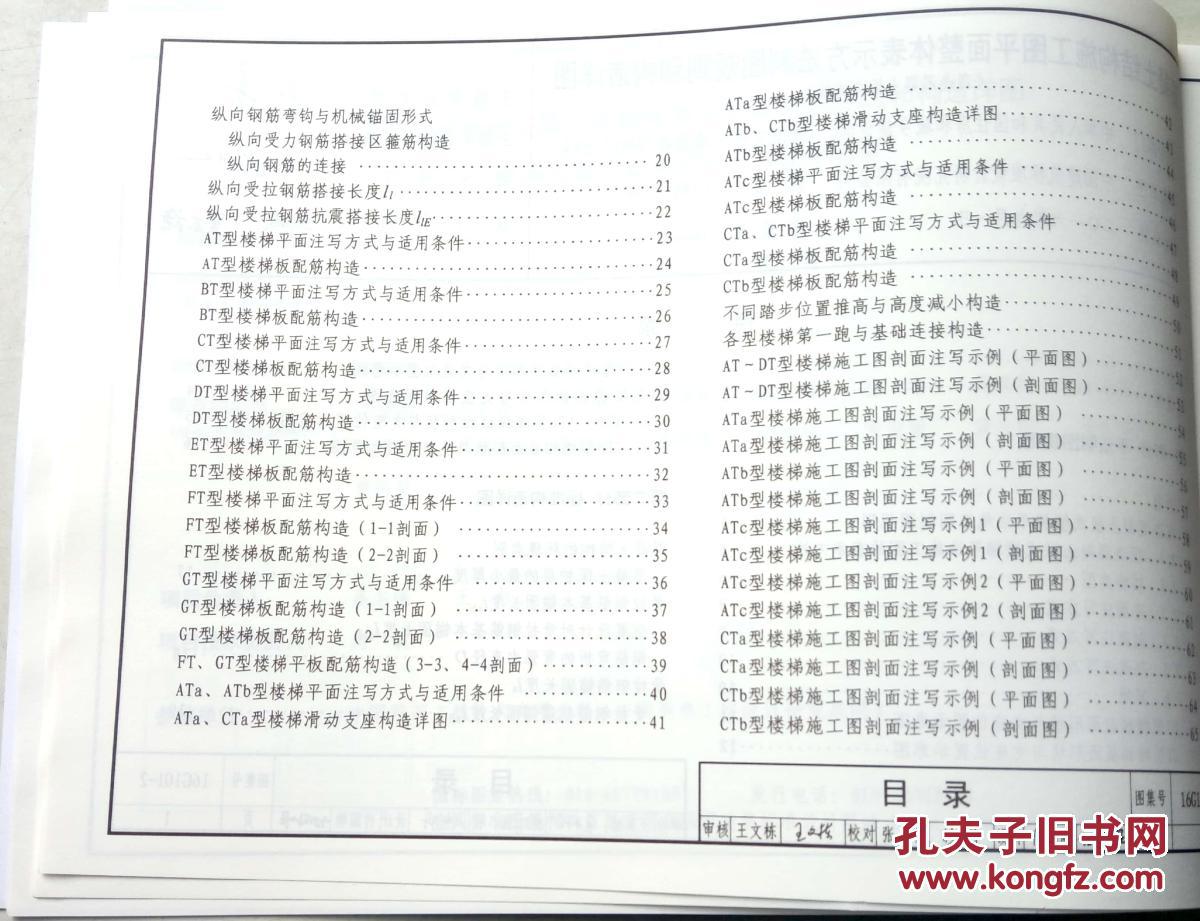 纵向钢筋弯钩与机械锚固形式
纵向受力钢筋搭接区箍筋构造
纵向钢筋的连接 ································ 20
纵向受拉钢筋搭接长度ll ································ 21
纵向受拉钢筋抗震搭接长度llE ································ 22
AT型楼梯平面注写方式与适用条件 ···················· 23
AT型楼梯板配筋构造 ································ 24
BT型楼梯平面注写方式与适用条件 ···················· 25
BT型楼梯板配筋构造 ································ 26
CT型楼梯平面注写方式与适用条件 ···················· 27
CT型楼梯板配筋构造 ································ 28
DT型楼梯平面注写方式与适用条件 ···················· 29
DT型楼梯板配筋构造 ································ 30
ET型楼梯平面注写方式与适用条件 ···················· 31
ET型楼梯板配筋构造 ································ 32
FT型楼梯平面注写方式与适用条件 ···················· 33
FT型楼梯板配筋构造(1-1剖面) ···················· 34
FT型楼梯板配筋构造(2-2剖面) ···················· 35
GT型楼梯平面注写方式与适用条件 ···················· 36
GT型楼梯板配筋构造(1-1剖面) ···················· 37
GT型楼梯板配筋构造(2-2剖面) ···················· 38
FT、GT型楼梯平板配筋构造(3-3、4-4剖面) ············ 39
ATa、ATb型楼梯平面注写方式与适用条件 ················ 40
ATa、CTa型楼梯滑动支座构造详图 ···················· 41
ATa型楼梯板配筋构造 ································ 42
ATb、CTb型楼梯滑动支座构造详图 ···················· 43
ATb型楼梯板配筋构造 ································ 44
ATc型楼梯平面注写方式与适用条件 ···················· 45
ATc型楼梯板配筋构造 ································ 46
CTa、CTb型楼梯平面注写方式与适用条件 ················ 47
CTa型楼梯板配筋构造 ································ 48
CTb型楼梯板配筋构造 ································ 49
不同踏步位置推高与高度减小构造 ···················· 50
各型楼梯第一跑与基础连接构造 ···················· 51
AT~DT型楼梯施工图剖面注写示例(平面图) ············ 52
AT~DT型楼梯施工图剖面注写示例(剖面图) ············ 53
ATa型楼梯施工图剖面注写示例(平面图) ················ 54
ATa型楼梯施工图剖面注写示例(剖面图) ················ 55
ATb型楼梯施工图剖面注写示例(平面图) ················ 56
ATb型楼梯施工图剖面注写示例(剖面图) ················ 57
ATc型楼梯施工图剖面注写示例1(平面图) ················ 58
ATc型楼梯施工图剖面注写示例1(剖面图) ················ 59
ATc型楼梯施工图剖面注写示例2(平面图) ················ 60
ATc型楼梯施工图剖面注写示例2(剖面图) ················ 61
CTa型楼梯施工图剖面注写示例(平面图) ················ 62
CTa型楼梯施工图剖面注写示例(剖面图) ················ 63
CTb型楼梯施工图剖面注写示例(平面图) ················ 64
CTb型楼梯施工图剖面注写示例(剖面图) ················ 65
目录 图集号 16G1
审核 王文栋 校对 张
孔夫子旧书网
www.kongfz.com